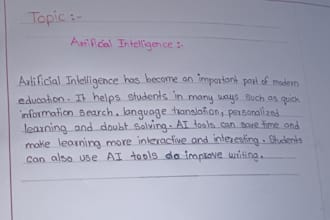 Topic :-
Artificial Intelligence :-
Artificial Intelligence has become an important part of modern
education. It helps students in many ways such as quick
information search, language translation, personalized
learning and doubt solving. AI tools can save time and
make learning more interactive and interesting. Students
can also use AI tools do improve writing.